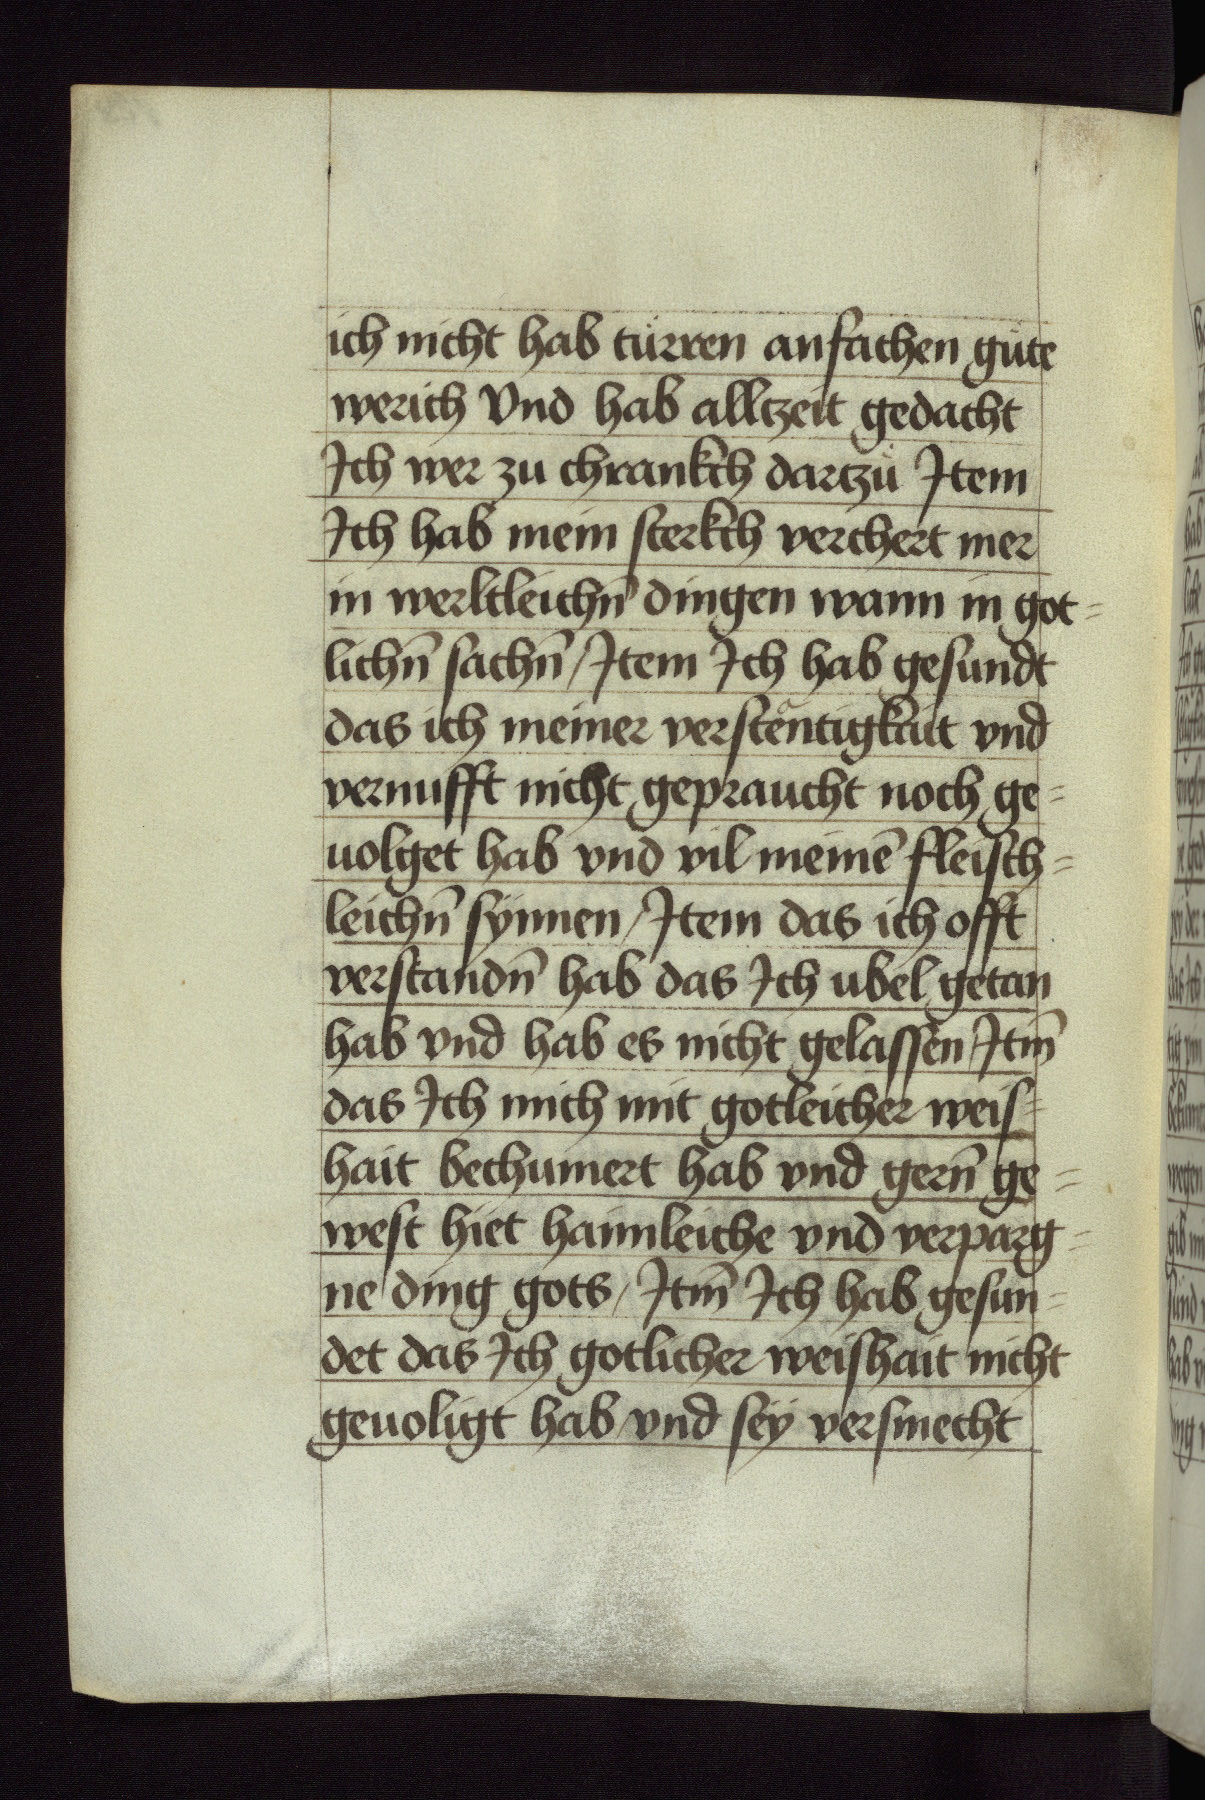 ich nicht hab tuͤrren anfachen gůte
werich Vnd hab alltzeit gedacht
Ich wer zu chrankch dartzů Item
Ich hab mein sterkch verchert mer
in werltleichn̄ dingen wann in got=
lichn̄ sachn̄ / Item Ich hab gesundt
das ich meiner verstentigkait vnd
vernufft nicht gepraucht noch ge=
uolget hab vnd vil meinē fleisch=
leichn̄ synnen / Item das ich offt
verstandn̄ hab das Ich ubel getan
hab vnd hab es nicht gelassen / Itm̄
das Ich mich mit gotleicher weis=
hait bechumert hab vnd gern̄ ge=
west hiet haimleiche vnd verparg=
ne ding gots / Itm̄ Ich hab gesun=
det das Ich gotlicher weishait nicht
geuoligt hab vnd sey versmecht